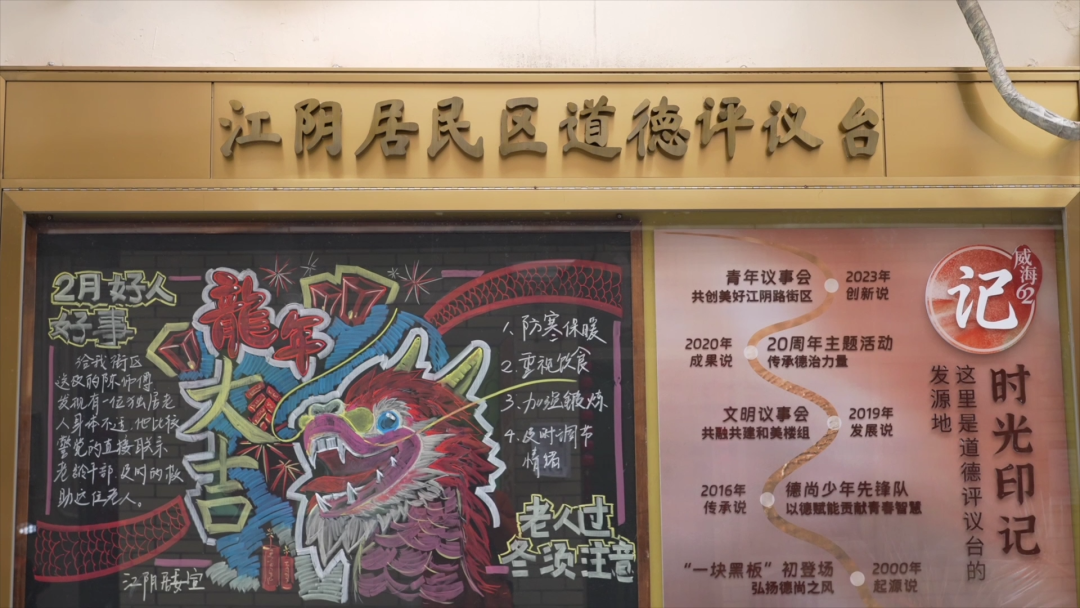 江阴居民区道德评议台
2月好人
好事
给我街区
送奶的陈师傅
发现有一位独居老
人身体不适,他比较
警觉的直接联系
老龄干部,及时的救
助这位老人。
江阴居委宣
龍年
大吉
1、防寒保暖
2、重视饮食
3、加强锻炼
4、及时调节
情绪
老人过
冬须注意
青年议事会
共创美好江阴路街区
2023年
创新说
2020年
成果说
20周年主题活动
传承德治力量
文明议事会
共融共建和美楼组
2019年
发展说
2016年
传承说
德尚少年先锋队
以德赋能贡献青春智慧
“一块黑板”初登场
弘扬德尚之风
2000年
起源说
记
威海62
时光印记
这里是道德评议台的
发源地